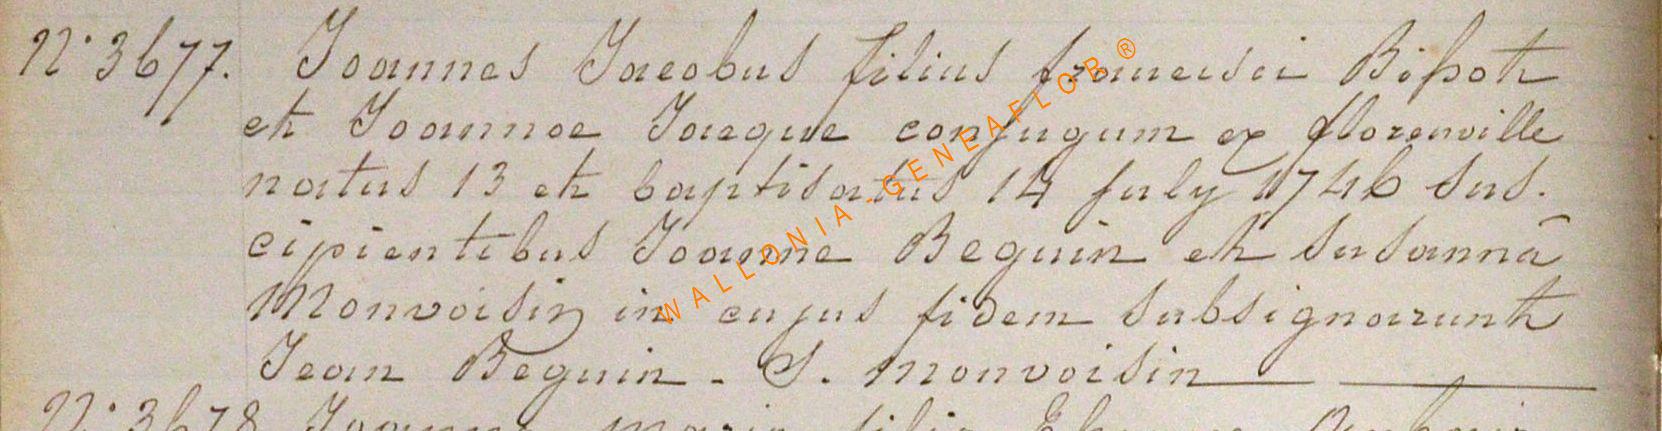 N° 3677. Joannes Jacobus filius francisci Bissot
et Joannae Jacque conjugum ex florenville
natus 13 et baptisatus 14 july 1746 sus.
cipientibus Joanne Beguin et Susannâ
Monvoisin in cujus fidem subsignarunt
Jean Beguin - S. Monvoisin
N° 3678 Joanna maria filia
WALLONIA.GENEAFLOR®